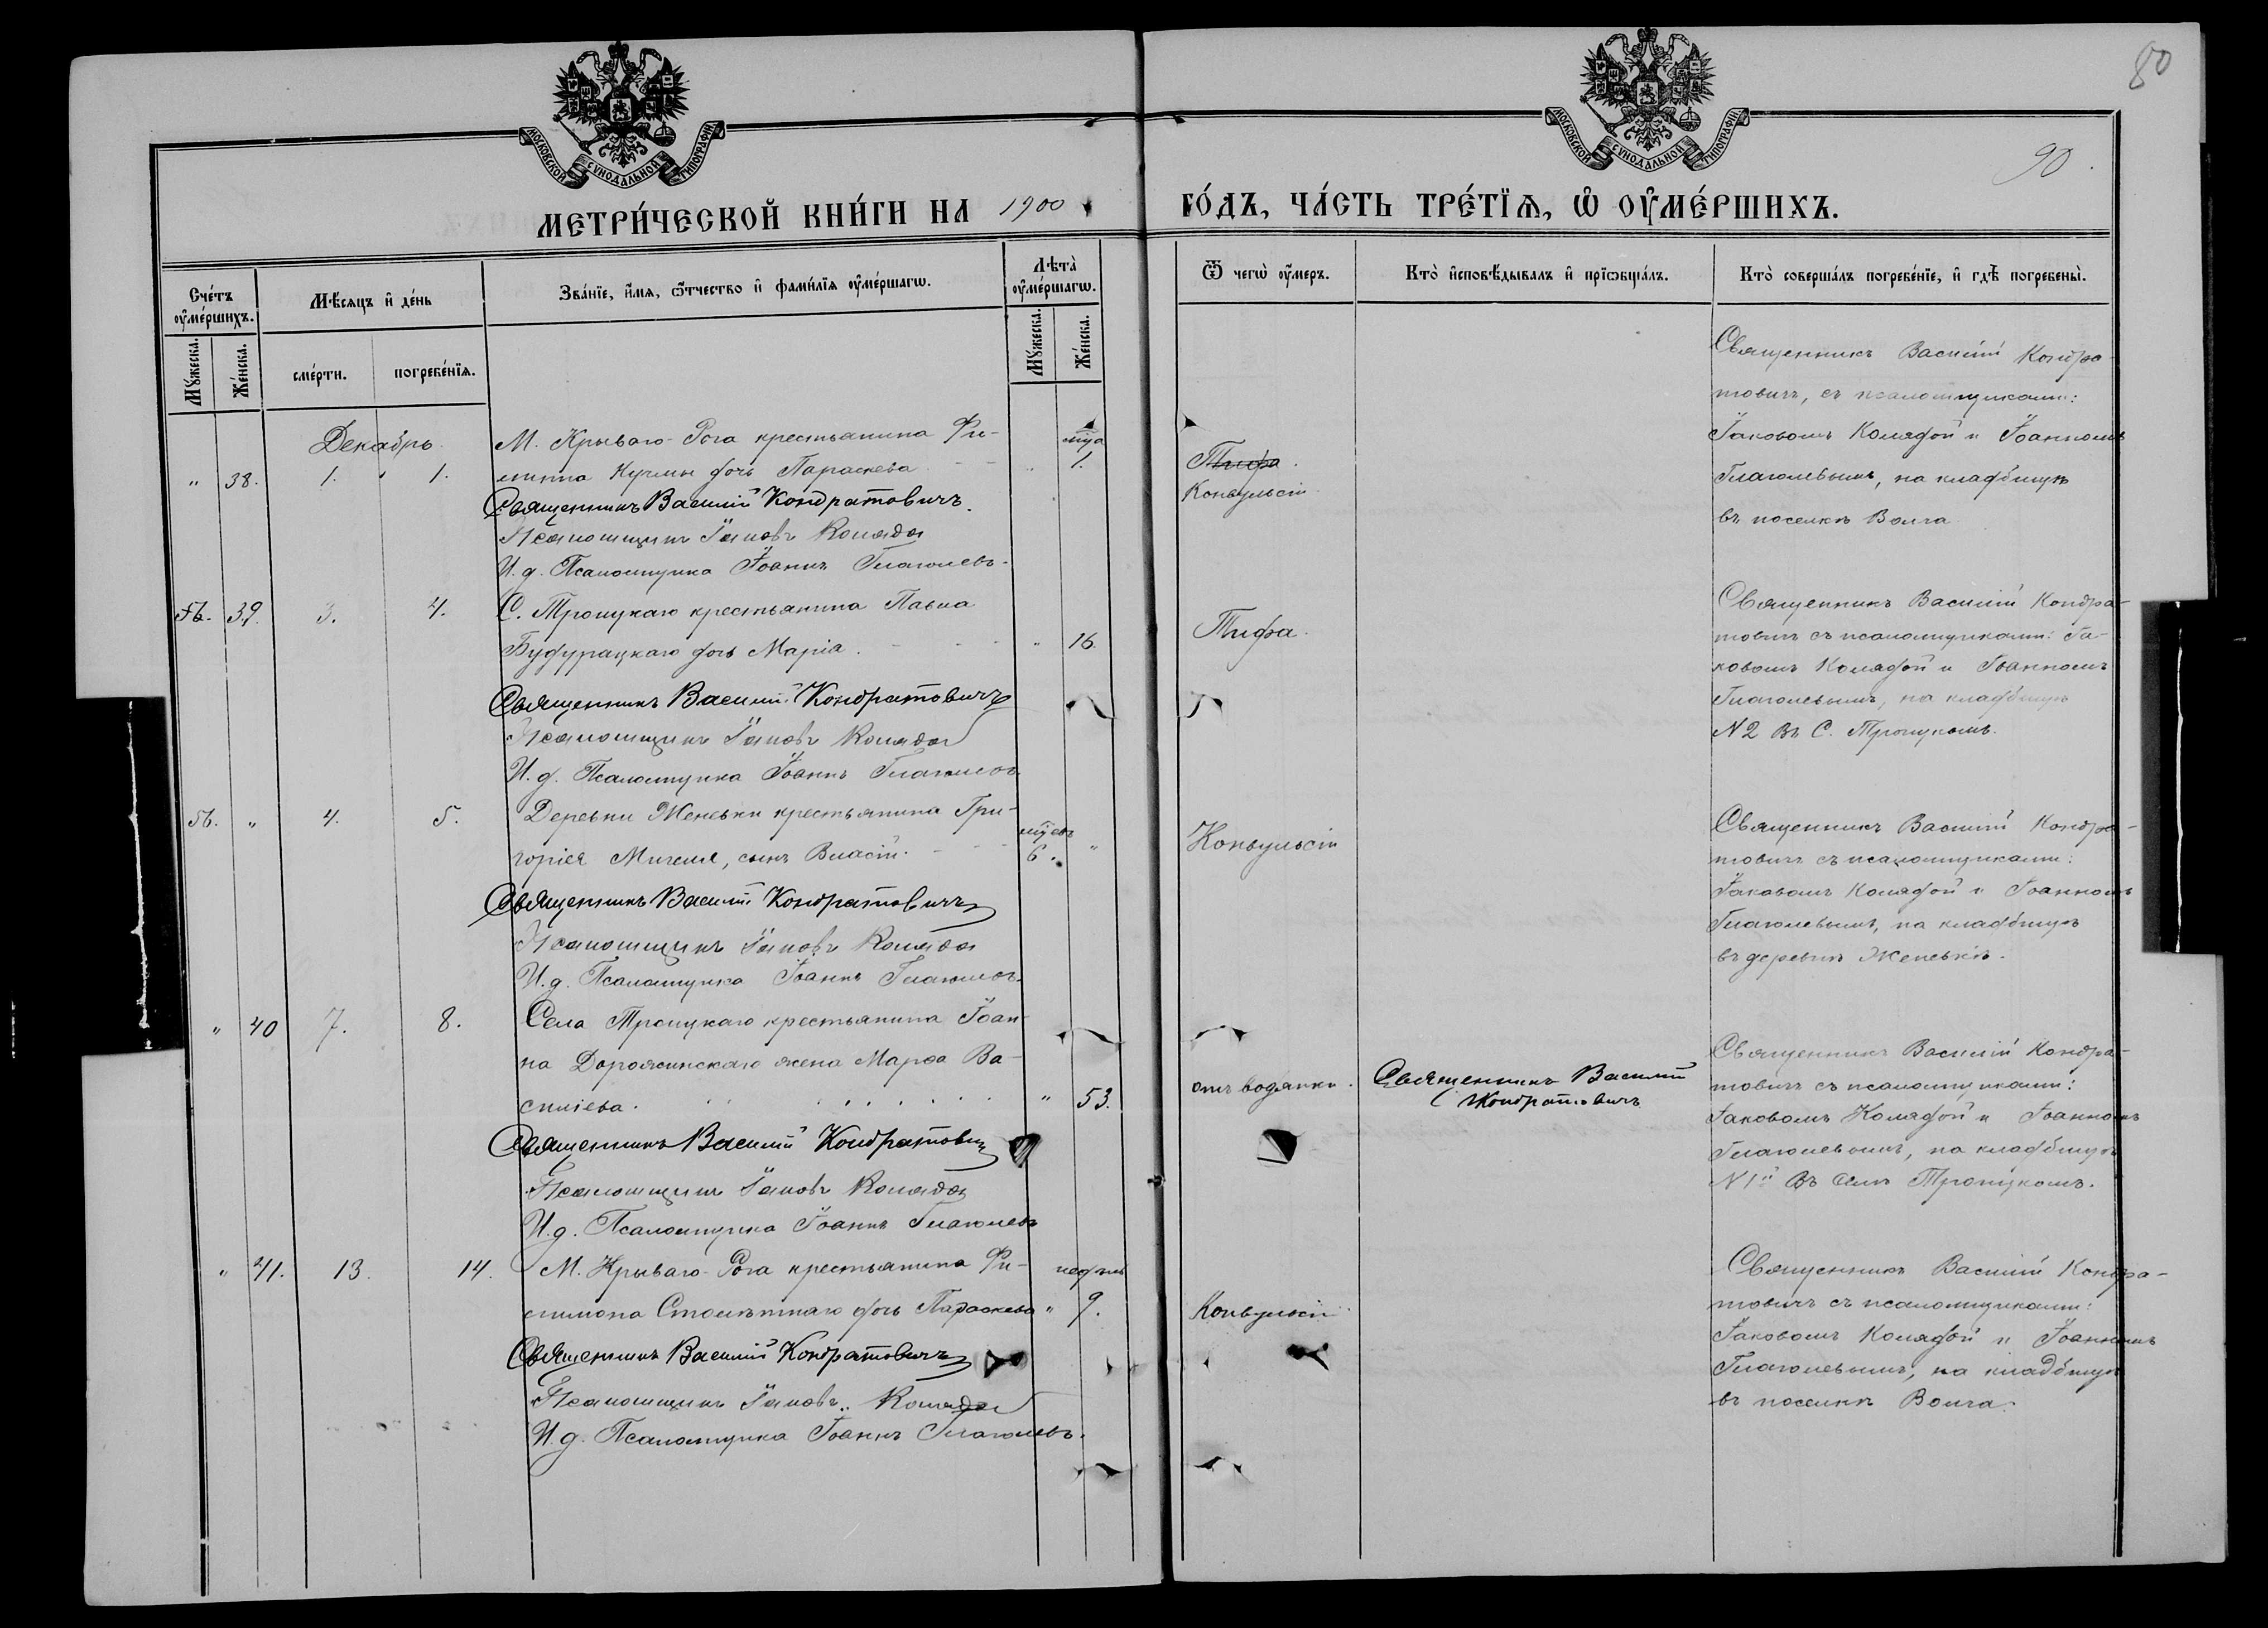 80
90.
МОСКОВСКОЙ СѴНОДАЛЬНОЙ ТИПОГРАФІИ
МОСКОВСКОЙ СѴНОДАЛЬНОЙ ТИПОГРАФІИ
МЕТРИ́ЧЕСКОЙ КНИ́ГИ НА 1900 ГО́ДЪ, ЧА́СТЬ ТРЕ́ТЇѦ, Ѡ҆ ОУ҆МЕ́РШИХЪ.
Сче́тъ оу҆ме́ршихъ.
Мꙋ́жеска.
Же́нска.
Мѣ́сяцъ и҆ де́нь
сме́рти.
погребе́нїѧ.
Зва́нїе, и҆́мѧ, ѻ҆́тчество и҆ фами́лїѧ оу҆ме́ршагѡ.
Лѣта̀ оу҆ме́ршагѡ.
Мꙋ́жеска.
Же́нска.
Ѿ чегѡ̀ оу҆́меръ.
Кто̀ и҆сповѣ́дывалъ и҆ прїѡбща́лъ.
Кто̀ соверша́лъ погребе́нїе, и҆ гдѣ̀ погребены̀.
Декабрь
" 38. 1. 1.
М. Крываго-Рога крестьянина Фи-
липпа Кучмы дочь Параскева
мѣца
1.
Тифа.
Конвульсіи
Священникъ Василій Кондратовичъ.
Псаломщикъ Іаковъ Коляда
И. д. Псаломщика Іоаннъ Глаголевъ.
Священникъ Василій Кондра-
товичъ, съ псаломщиками:
Іаковомъ Колядой и Іоанномъ
Глаголевымъ, на кладбищѣ
въ поселкѣ Волга
39. 3. 4.
С. Троицкаго крестьянина Павла
Будурацкаго дочь Марія. " 16.
Тифа.
Священникъ Василій Кондратовичъ
Псаломщикъ Іаковъ Коляда
И. д. Псаломщика Іоаннъ Глаголевъ
Священникъ Василій Кондра-
товичъ съ псаломщиками: Іа-
ковомъ Колядой и Іоанномъ
Глаголевымъ, на кладбищѣ
N 2 въ С. Троицкомъ.
56. " 4. 5.
Деревни Женевки крестьянина Гри-
горія Мигеля, сынъ Власій.
мѣцевъ
6. "
Конвульсіи
Священникъ Василій Кондратовичъ
Псаломщикъ Іаковъ Коляда
И. д. Псаломщика Іоаннъ Глаголевъ.
Священникъ Василій Кондра-
товичъ съ псаломщиками:
Іаковомъ Колядой и Іоанномъ
Глаголевымъ, на кладбищѣ
въ деревнѣ Женевкѣ.
" 40 7. 8.
Села Троицкаго крестьянина Іоан-
на Дорожинскаго жена Марѳа Ва-
силіева. " 53.
отъ водянки.
Священникъ Василій
Кондратовичъ
Священникъ Василій Кондратовичъ
Псаломщикъ Іаковъ Коляда
И. д. Псаломщика Іоаннъ Глаголевъ
Священникъ Василій Кондра-
товичъ съ псаломщиками:
Іаковомъ Колядой и Іоанномъ
Глаголевымъ, на кладбищѣ
N 1й въ селѣ Троицкомъ.
" 41. 13. 14.
М. Крываго-Рога крестьянина Фи-
лимона Столѣтнаго дочь Параскева
недѣль
" 9.
Конвульсіи
Священникъ Василій Кондратовичъ
Псаломщикъ Іаковъ Коляда
И. д. Псаломщика Іоаннъ Глаголевъ.
Священникъ Василій Кондра-
товичъ съ псаломщиками:
Іаковомъ Колядой и Іоанномъ
Глаголевымъ, на кладбищѣ
въ поселкѣ Волга.